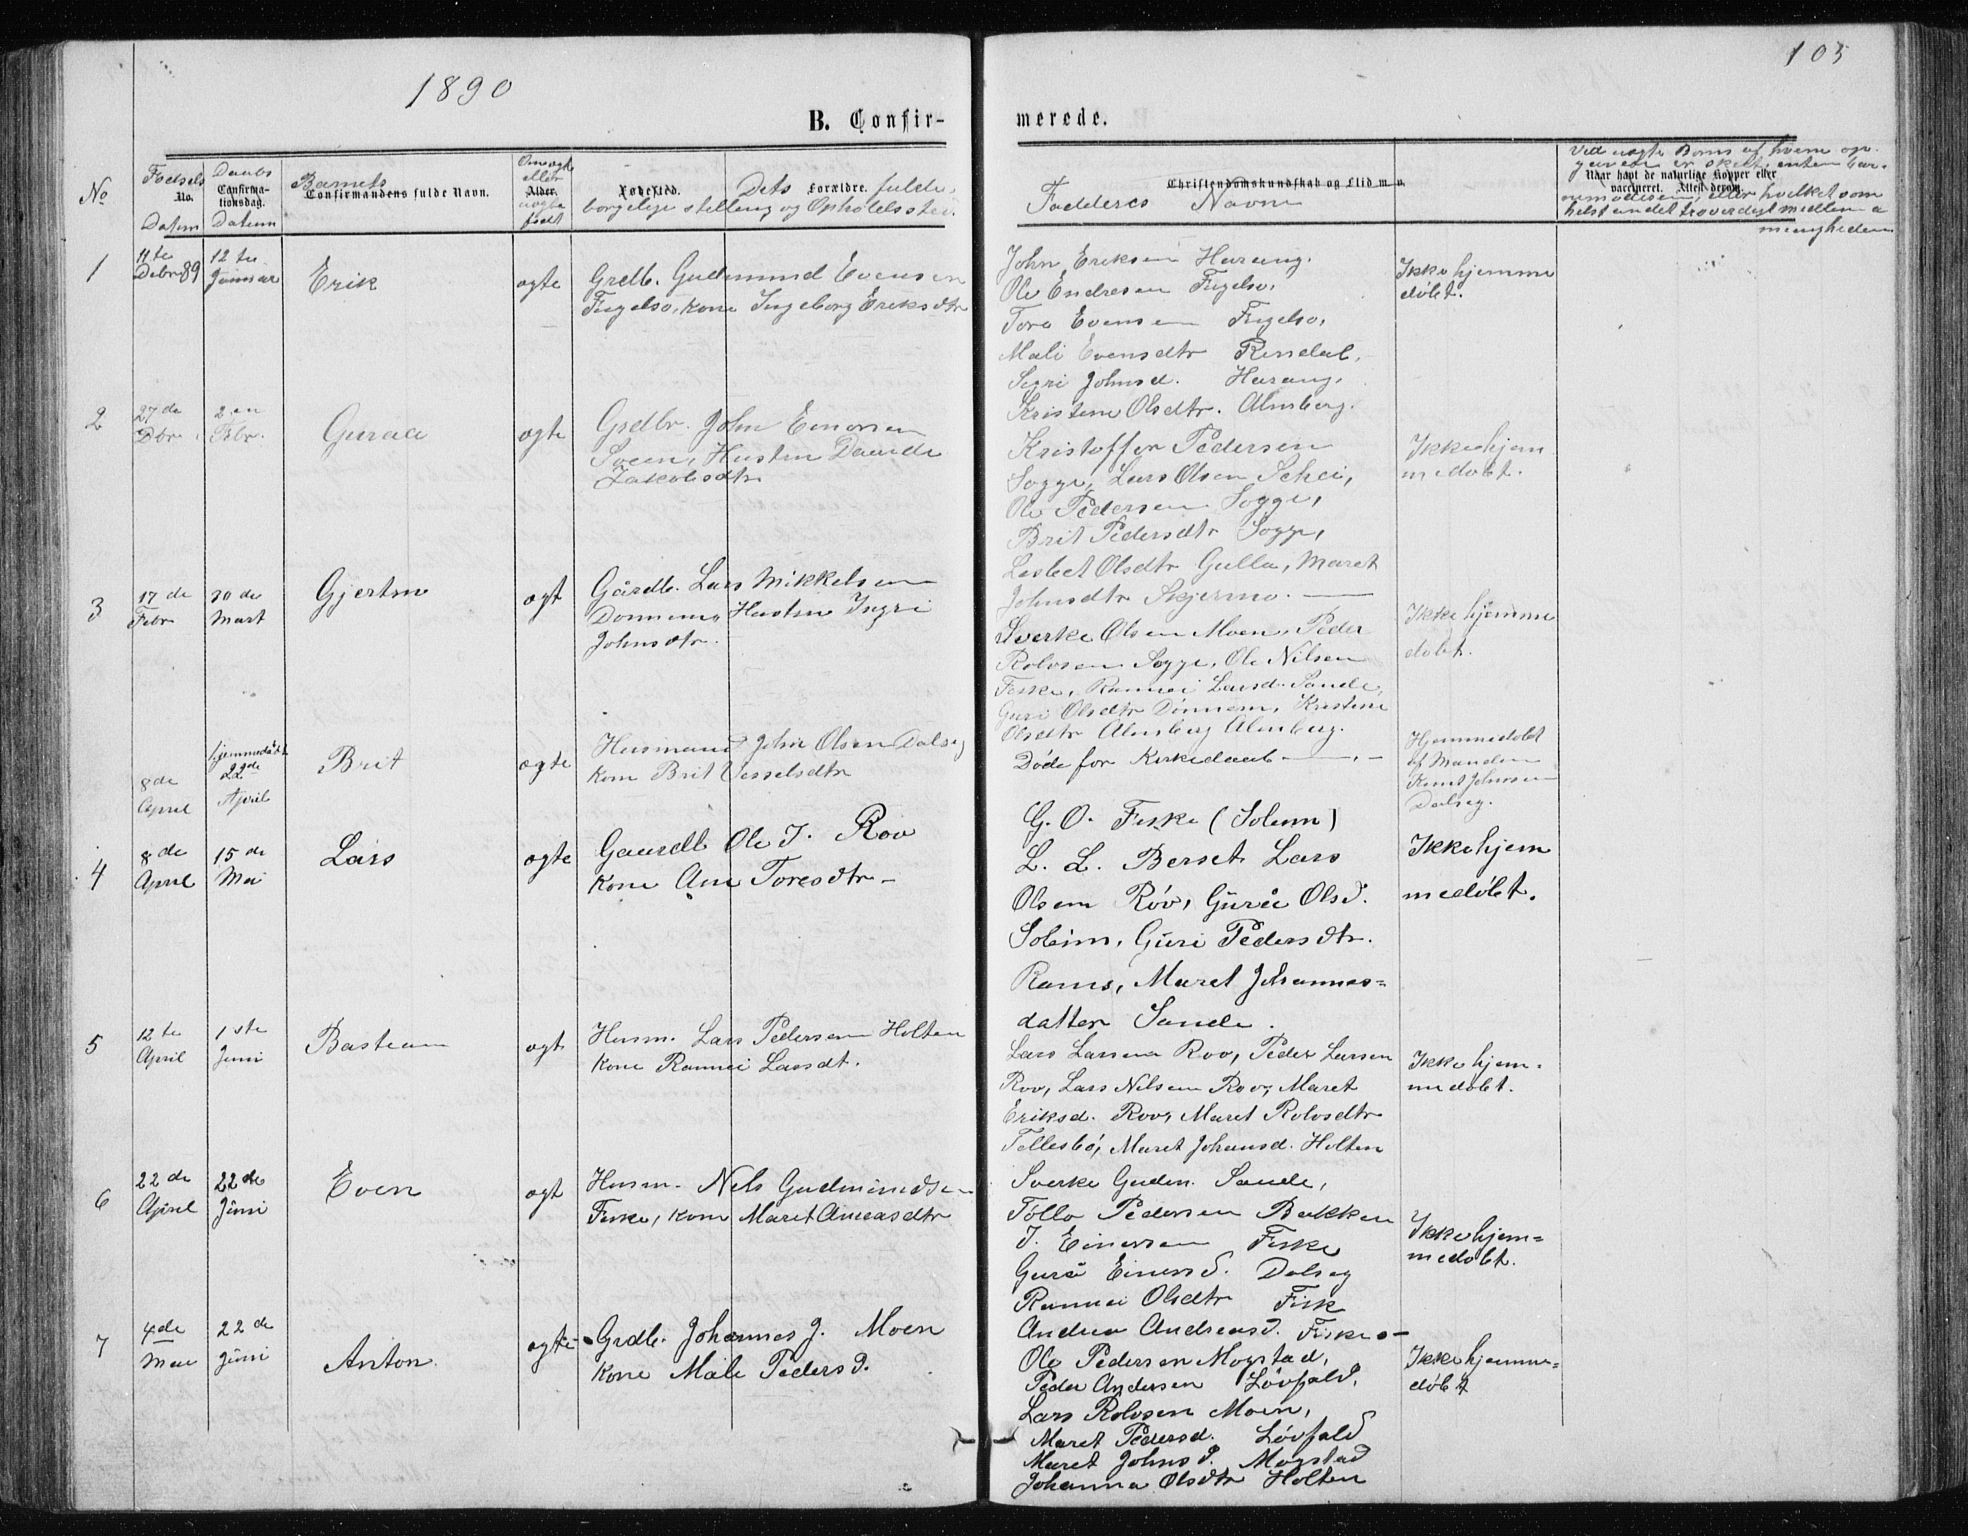 1890
105
B. Confir-
merede.
No
Fødsels
No.
Datum
Daabs
Confirma-
tionsdag.
Datum
Barnets
Confirmandens fulde Navn.
Om ægte
eller
Alder.
uægte
født
Fødested.
Dets Forældre. fulde,
borgelige stelling og Opholdssted.
Christendomskundskab og Flid m. v.
Fadderes Navne
Ved uægte Børns af hvem op-
gaven er skeet, enten
Naar havt de naturlige Kopper eller
vaccineret. Attest derom.
eller hvilket som
helst andet troverdigt medlem a
menigheden
1
11te
Debr 89
12te
Januar
Erik
ægte
Grdb. Gudmund Evensen
Fugelsø, kone Ingeborg Eriksdtr
John Eriksen Harang.
Ole Endresen Fugelsø,
Tore Evensen Fugelsø,
Mali Evensdtr Rindal,
Segri Johnsd. Harang,
Kristine Olsdtr. Almberg.
Ikke hjemme
døbt.
2
27de
Dbr.
2en
Febr.
Guraa
ægte
Grdbr. John Einersen
Sveen, Hustru
Jakobsdtr
Kristoffer Pedersen
Sogge, Lars Olsen Schei,
Ole Pedersen Sogge,
Brit Pedersdtr Sogge,
Lesbet Olsdtr Gulla, Maret
Johnsdtr Skjermo.
Ikke hjem
medøbt.
3
17de
Febr
30de
Mart
Gjertru
ægt
Gårdb. Lars Mikkelsen
Dønnem, Hustru Ingri
Johnsdtr.
Sverke Olsen Moen, Peder
Rolvsen Sogge, Ole Nilsen
Feske, Rannei Larsd. Sande,
Guri Olsdtr Dønnem, Kristine
Olsdtr Almberg Almberg.
Ikke hjemme
døbt.
8de
April
hjemmedøbt
22de
April
Brit
ægte
Husmand John Olsen Dalseg
kone Brit Vesselsdtr
Døde før Kirkedaab
Hjemmedøbt
af Manden
Knut Johnsen
Dalseg.
4
8de
April
15de
Mai
Lars
ægte
Gaardb Ole T. Røv
kone Ane Toresdtr
G. O. Fiske (Solem)
L. L. Berset, Lars
Olsen Røv, Gurie Olsd.
Solem, Guri Pedersdtr.
Rams, Maret Johannes=
datter Sande.
Ikke hjem
medøbt.
5
12te
April
1ste
Juni
Bastian
ægt
Husm. Lars Pedersen Holten
kone Rannei Larsdt.
Lars Larsen Røv, Peder Larsen
Røv, Lars Nilsen Røv, Maret
Eriksd. Røv, Maret Rolvsdtr
Tellesbø, Maret Johansd. Holten
Ikke hjem-
medøbt.
6
22de
April
22de
Juni
Even
ægt
Husm. Nels Gudmundsen
Fiske, kone Maret Andreasdtr
Sverke Gudm. Sande,
Tøllo Pedersen Bakken
I. Einersen Fiske
Gurå Einersd. Dalseg
Rannei Olsdtr Fisk
Andrea Andreasd. Fiske
Ikke hjem=
medøbt.
7
4de
Mai
22de
Juni
Anton
ægte
Grdb. Johannes J. Moen
kone Male Pedersd.
Ole Pedersen Mogstad,
Peder Andersen Løvfald,
Lars Rolvsen Moen,
Maret Pedersd. Løvfald
Maret Johnsd. Mogstad
Johanna Olsdtr Holten
Ikke hjemme=
døbt